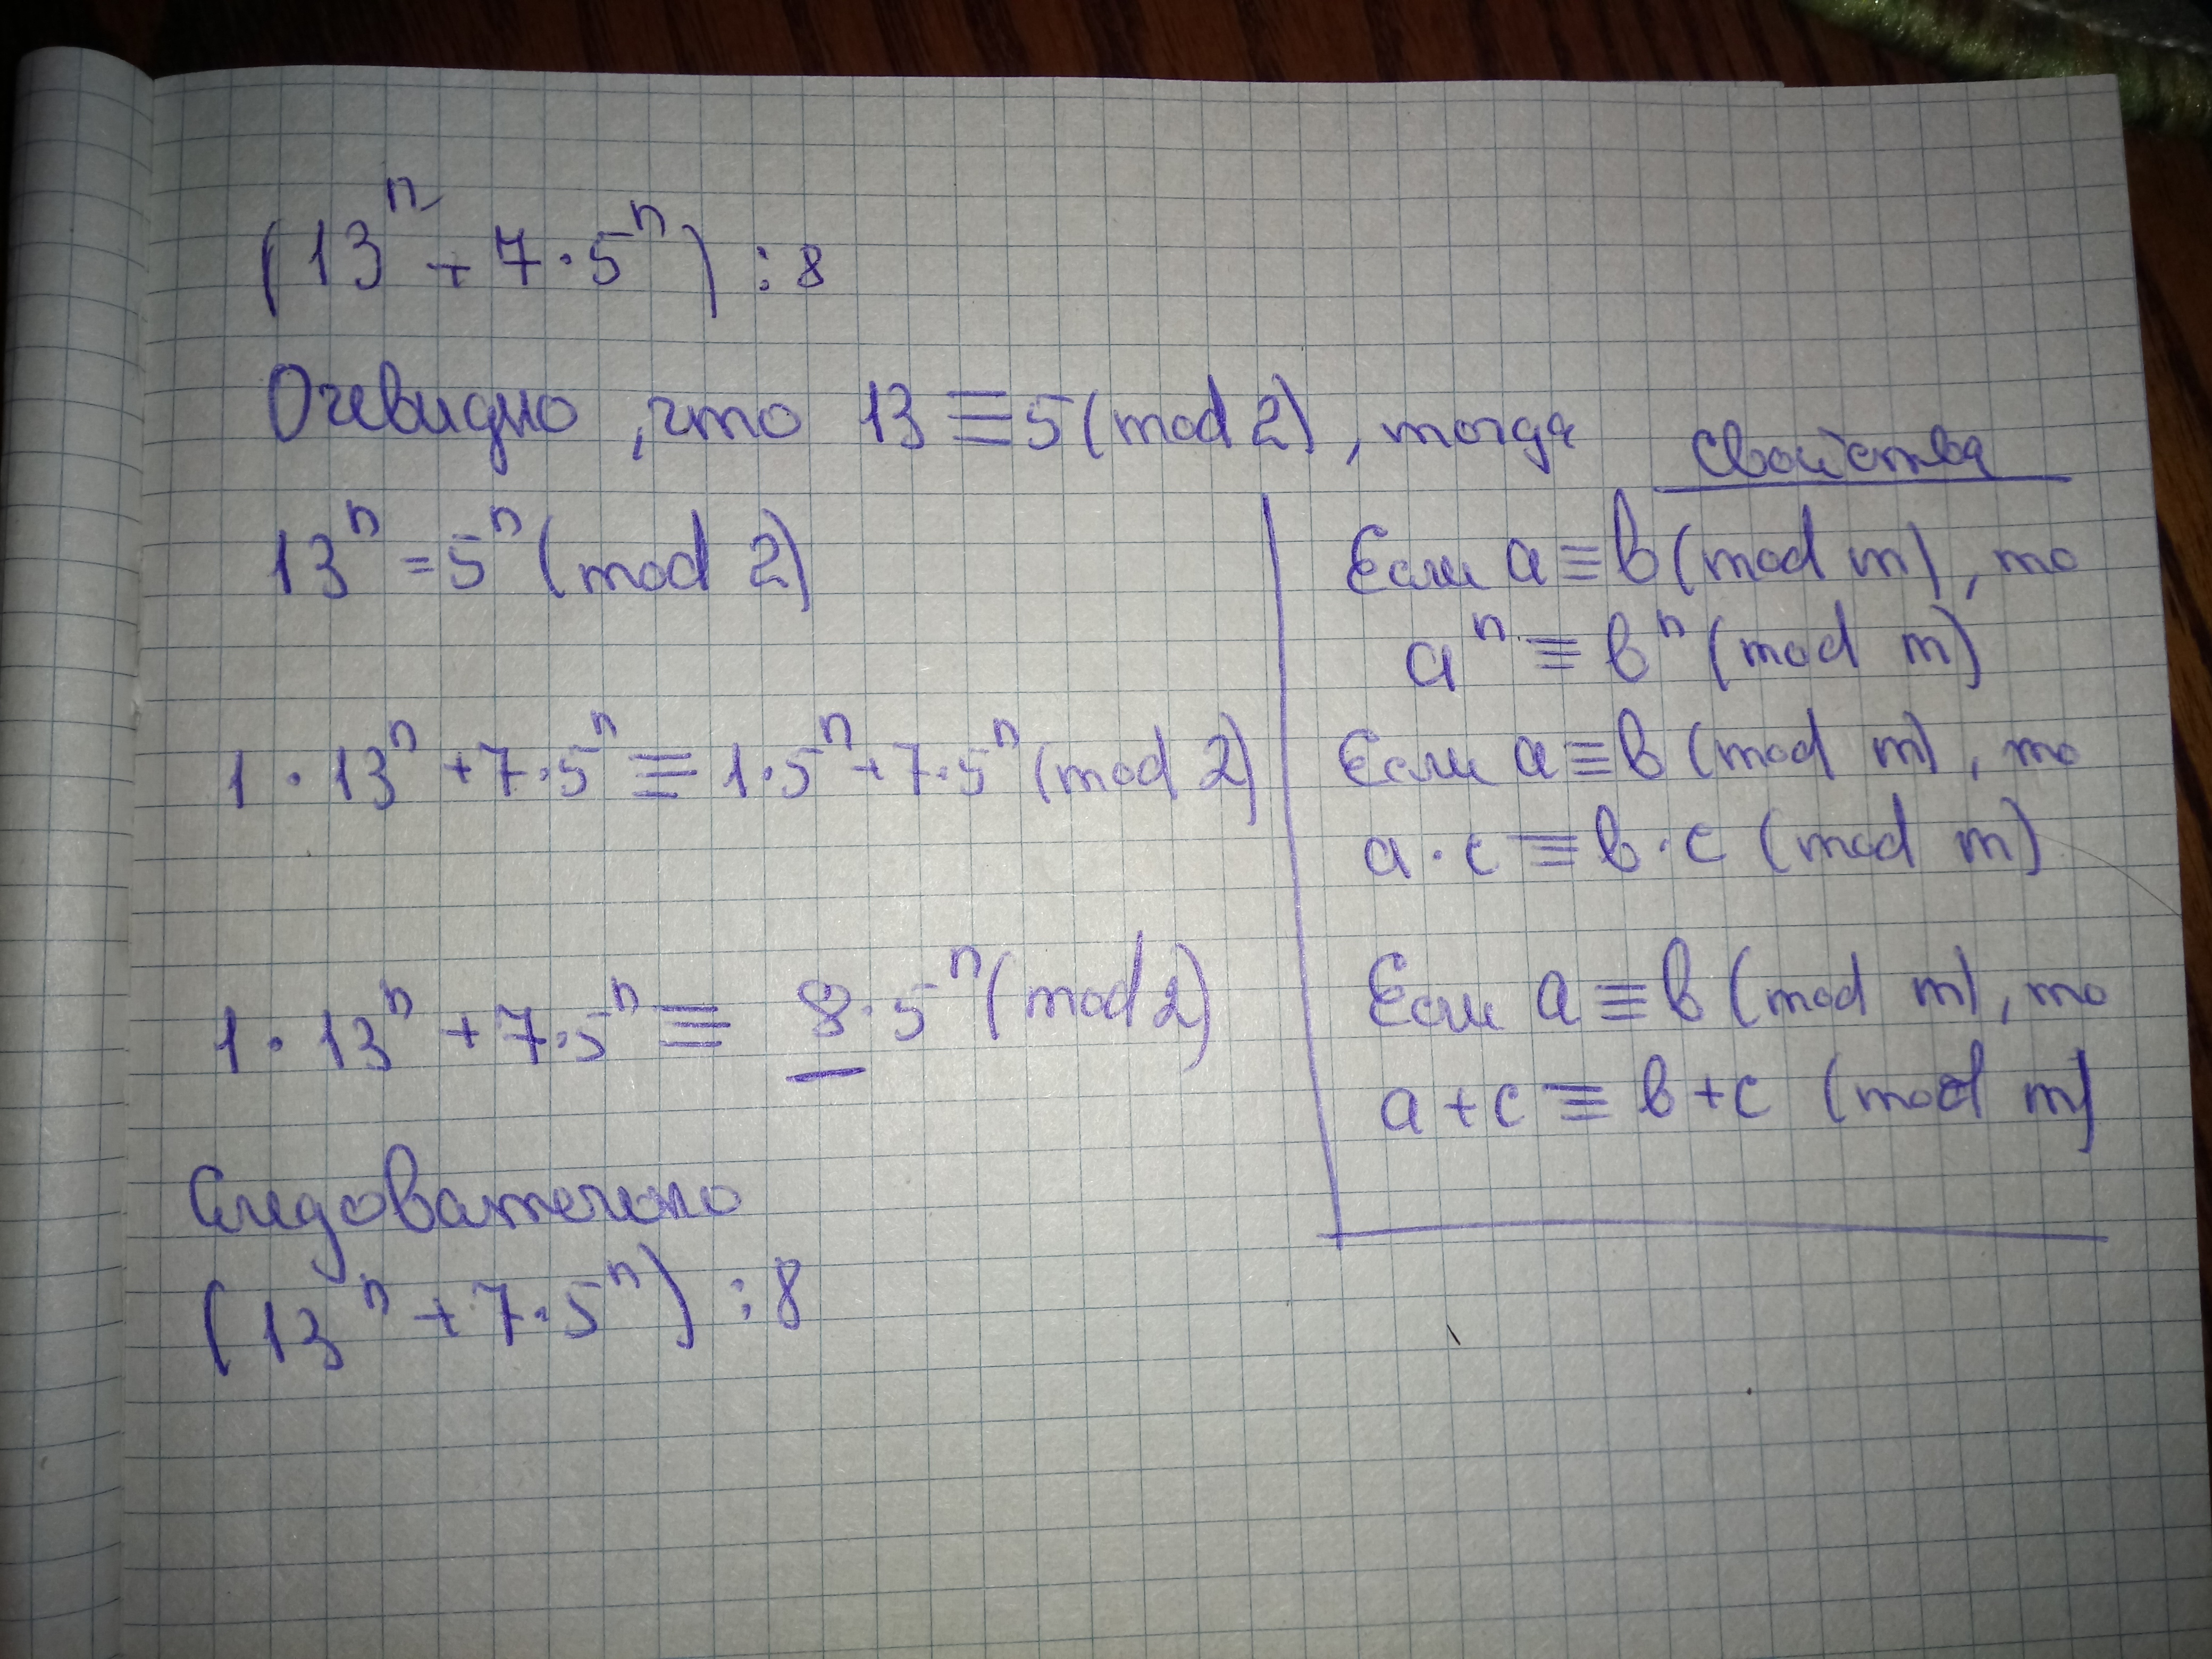 (13ⁿ + 7·5ⁿ) : 8
Очевидно, что 13 ≡ 5 (mod 2), тогда
13ⁿ = 5ⁿ (mod 2)
1 · 13ⁿ + 7·5ⁿ ≡ 1·5ⁿ + 7·5ⁿ (mod 2)
1 · 13ⁿ + 7·5ⁿ ≡ 8·5ⁿ (mod 2)
Следовательно
(13ⁿ + 7·5ⁿ) : 8
Свойства
Если a ≡ b (mod m), то
aⁿ ≡ bⁿ (mod m)
Если a ≡ b (mod m), то
a · c ≡ b · c (mod m)
Если a ≡ b (mod m), то
a + c ≡ b + c (mod m)